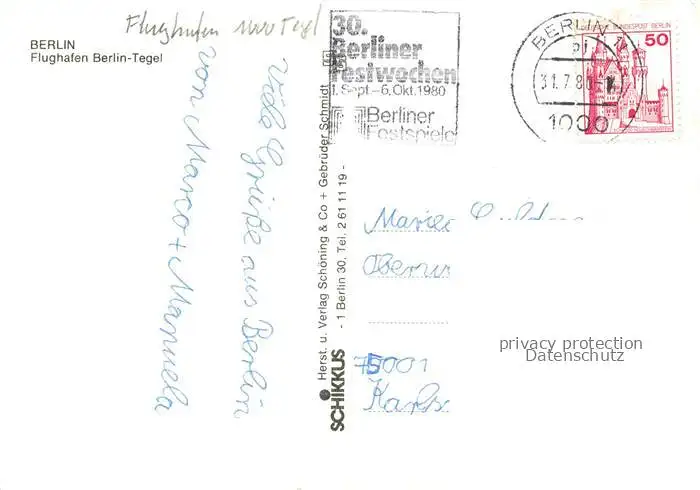 Flughafen Tegel
BERLIN
Flughafen Berlin-Tegel
Viele Grüße aus Berlin
von Marco + Manuela
30.
Berliner
Festwochen
1. Sept.–6. Okt. 1980
Berliner
Festspiele
BERLIN
31.7.80
1000
DEUTSCHE BUNDESPOST BERLIN
50
SCHIKKUS
Herst. u. Verlag Schöning & Co + Gebrüder Schmidt
- 1 Berlin 30, Tel. 2 61 11 19 -
privacy protection
Datenschutz